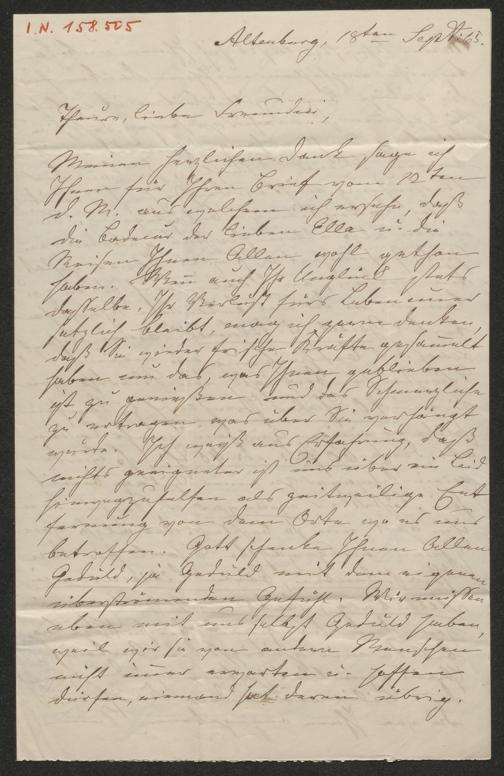 I.N. 158.505
Altenburg, 18ten Sept. 65.
Theure, liebe Freundin,
Meinen herzlichen Dank sage ich
Ihnen für Ihren Brief vom 12ten
d. M. aus welchem ich ersehe, daß
die Badecur der lieben Ella u. die
Reisen Ihnen Allen wohl gethan
haben. Wenn auch Ihr Unglück stets
dasselbe, Ihr Verlust fürs Leben uner
setzlich bleibt, mag ich gern denken,
daß Sie wieder frische Kräfte gesammelt
haben um das, was Ihnen geblieben
ist zu genießen und das Schmerzliche
zu ertragen was über Sie verhängt
wurde. Ich weiß aus Erfahrung, daß
nichts geeigneter ist uns über ein Leid
hinwegzuhelfen als zeitweilige Ent
fernung von dem Orte wo es uns
betroffen. Gott schenke Ihnen Allen
Geduld, ja Geduld mit dem eigenen
überströmenden Gefühl. Wir müssen
eben mit uns selbst Geduld haben,
weil wir sie von andern Menschen
nicht immer erwarten u. hoffen
dürfen, niemand hat deren übrig.